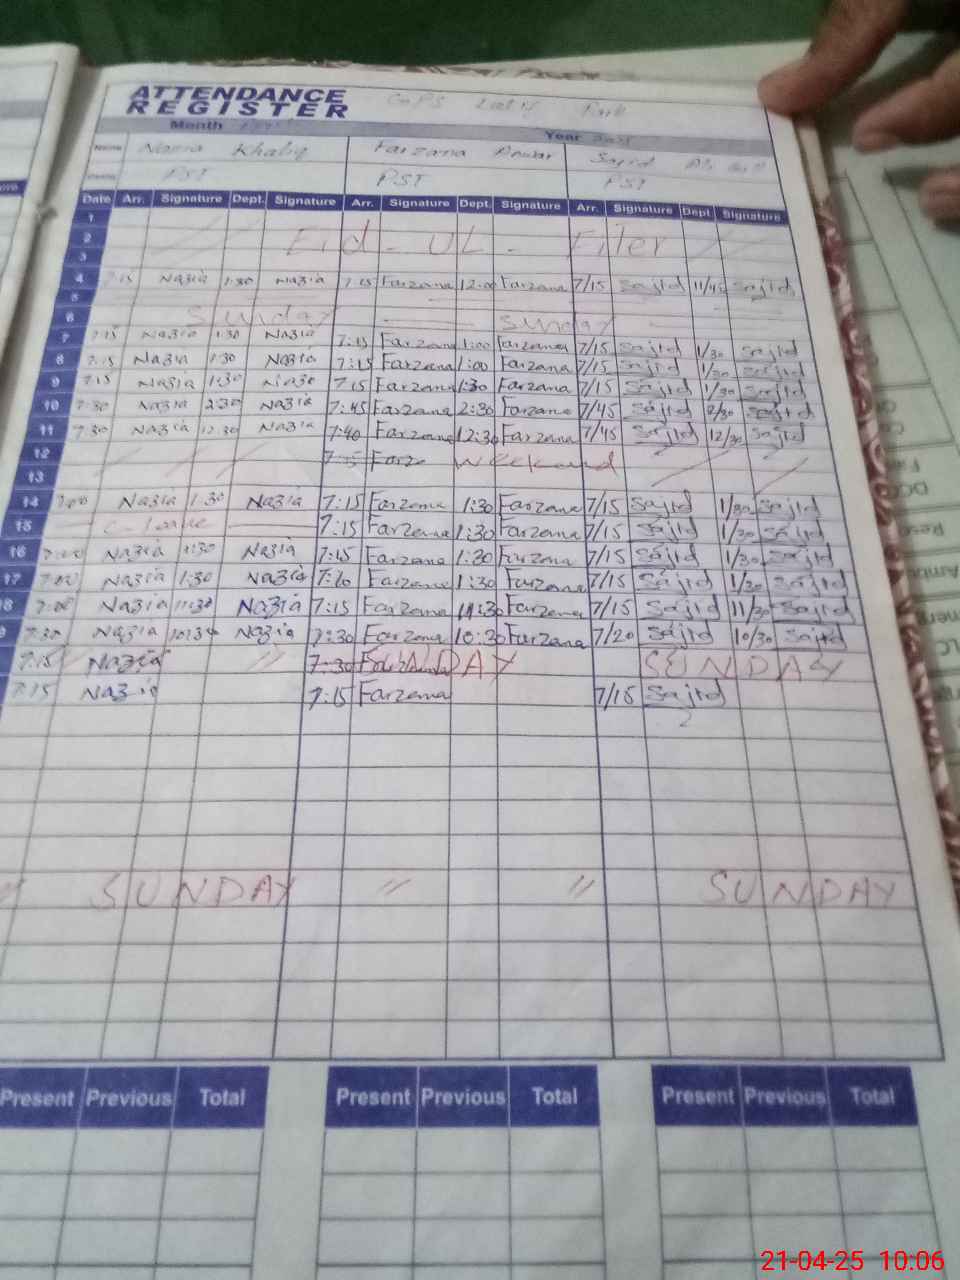 ATTENDANCE
REGISTER
Month
Year
Name Nazia Khaliq Farzana Sajid
PST PST PST
Date Arr. Signature Dept. Signature Arr. Signature Dept. Signature Arr. Signature Dept. Signature
1
2 Eid - UL - Fiter
3
4 7:15 Nazia 1:30 Nazia 7:15 Farzana 12:00 Farzana 7/15 Sajid 11/45 Sajid
5
6 Sunday Sunday
7 7:15 Nazia 1:30 Nazia 7:15 Farzana 1:00 Farzana 7/15 Sajid 1/30 Sajid
8 7:15 Nazia 1:30 Nazia 7:15 Farzana 1:00 Farzana 7/15 Sajid 1/30 Sajid
9 7:15 Nazia 1:30 Nazia 7:15 Farzana 1:30 Farzana 7/15 Sajid 1/30 Sajid
10 7:30 Nazia 2:30 Nazia 7:45 Farzana 2:30 Farzana 7/45 Sajid 2/30 Sajid
11 7:30 Nazia 12:30 Nazia 7:40 Farzana 12:30 Farzana 7/45 Sajid 12/30 Sajid
12 7:15 Farza Weekend
13
14 7:00 Nazia 1:30 Nazia 7:15 Farzana 1:30 Farzana 7/15 Sajid 1/30 Sajid
15 C-leave 7:15 Farzana 1:30 Farzana 7/15 Sajid 1/30 Sajid
16 7:00 Nazia 1:30 Nazia 7:15 Farzana 1:30 Farzana 7/15 Sajid 1/30 Sajid
17 7:00 Nazia 1:30 Nazia 7:20 Farzana 1:30 Farzana 7/15 Sajid 1/30 Sajid
18 7:00 Nazia 11:30 Nazia 7:15 Farzana 11:30 Farzana 7/15 Sajid 11/30 Sajid
7:30 Nazia 10:30 Nazia 7:30 Farzana 10:30 Farzana 7/20 Sajid 10/30 Sajid
7:15 Nazia 7:30 Farzana SUNDAY SUNDAY
7:15 Nazia 7:15 Farzana 7/15 Sajid
SUNDAY SUNDAY
Present Previous Total Present Previous Total Present Previous Total
21-04-25 10:06